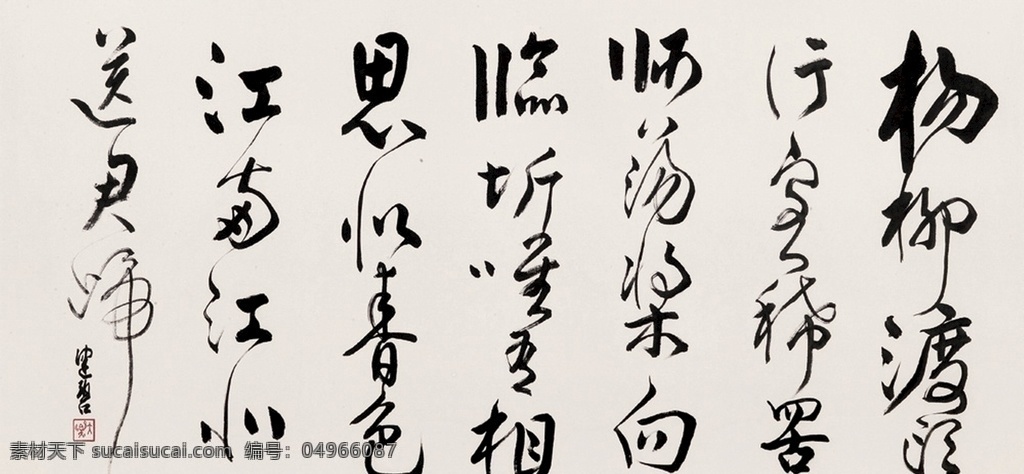 楊柳渡頭
行客稀罟
師蕩槳向
臨圻唯有相
思似春色
江南江北
送君歸
素材天下 sucaisucai.com 编号：04966087